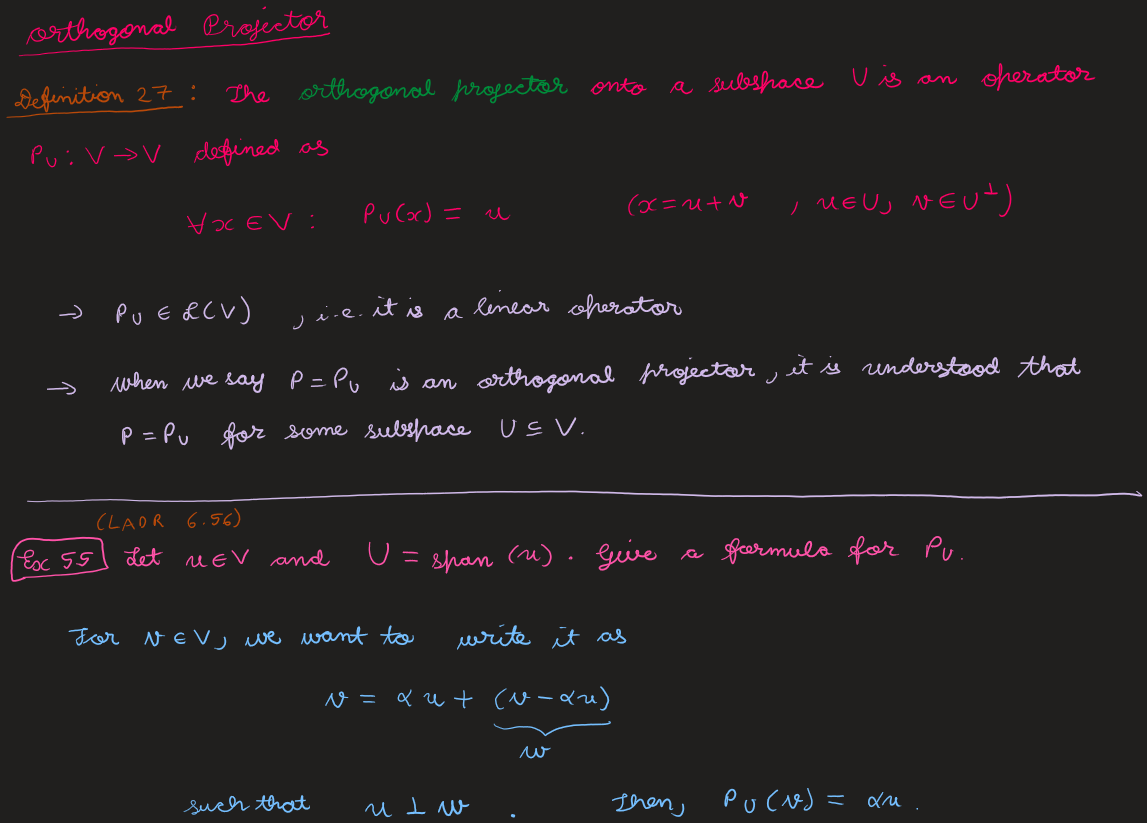 orthogonal Projector
Definition 27 : The orthogonal projector onto a subspace U is an operator
P_U : V → V defined as
∀x ∈ V : P_U(x) = u (x = u + v , u ∈ U, v ∈ U^⊥)
→ P_U ∈ L(V) , i.e. it is a linear operator
→ when we say P = P_U is an orthogonal projector, it is understood that
P = P_U for some subspace U ⊆ V.
(LADR 6.56)
Ex 55 Let u ∈ V and U = span (u). Give a formula for P_U.
For v ∈ V, we want to write it as
v = αu + (v − αu)
w
such that u ⊥ w . Then, P_U(v) = αu.